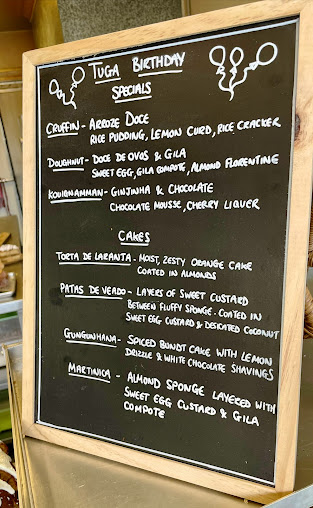 TUGA BIRTHDAY
SPECIALS
CRUFFIN - ARROZE DOCE
RICE PUDDING, LEMON CURD, RICE CRACKER
DOUGHNUT - DOCE DE OVOS & GILA
SWEET EGG, GILA COMPOTE, ALMOND FLORENTINE
KOUIGNAMMAN - GINJINHA & CHOCOLATE
CHOCOLATE MOUSSE, CHERRY LIQUER
CAKES
TORTA DE LARANTA - MOIST, ZESTY ORANGE CAKE
COATED IN ALMONDS
PATAS DE VEADO - LAYERS OF SWEET CUSTARD
BETWEEN FLUFFY SPONGE. COATED IN
SWEET EGG CUSTARD & DESICATED COCONUT
GUNGUNHANA - SPICED BUNDT CAKE WITH LEMON
DRIZZLE & WHITE CHOCOLATE SHAVINGS
MARTINICA - ALMOND SPONGE LAYERED WITH
SWEET EGG CUSTARD & GILA
COMPOTE